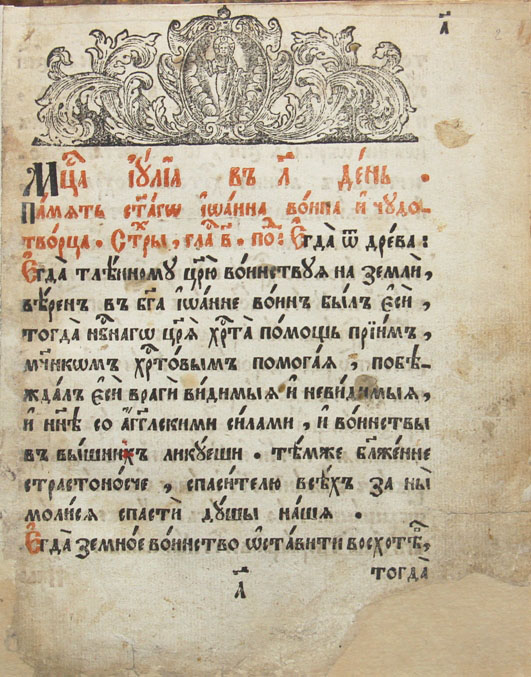 а҃
Мц҃а іꙋ́лїа въ л҃ де́нь.
Па́мять ст҃а́гѡ і҆ѡа́нна во́ина и҆ чꙋдо-
тво́рца. Стр҃ы, гла́, в҃. по́: Є҆гда̀ ѿ дре́ва:
Є҆гда̀ тлѣ́нномꙋ цр҃ю̀ во́инствꙋя на землѝ,
вѣ́ренъ въ бг҃а і҆ѡа́нне во́инъ бы́лъ є҆сѝ,
тогда̀ нбⷭ҇нагѡ цр҃ѧ̀ хрⷭ҇та̀ по́мощь прїи́мъ,
мч҃нкѡмъ хрⷭ҇то́вымъ помога́я, побѣ-
жда́лъ є҆сѝ врагѝ ви́димыя и҆ неви́димыя,
и҆ нн҃ѣ со а҆́гг҃лскими си́лами, и҆ во́инствы
въ вы́шнихъ ликꙋ́еши. тѣ́мже бл҃же́нне
страстоно́сче, спаси́телю всѣ́хъ за ны̀
моли́ся спастѝ дꙋ́шы на́шя.
Є҆гда̀ земно́е во́инство ѡ҆ста́вити восхотѣ́в,
тогда̀
а҃